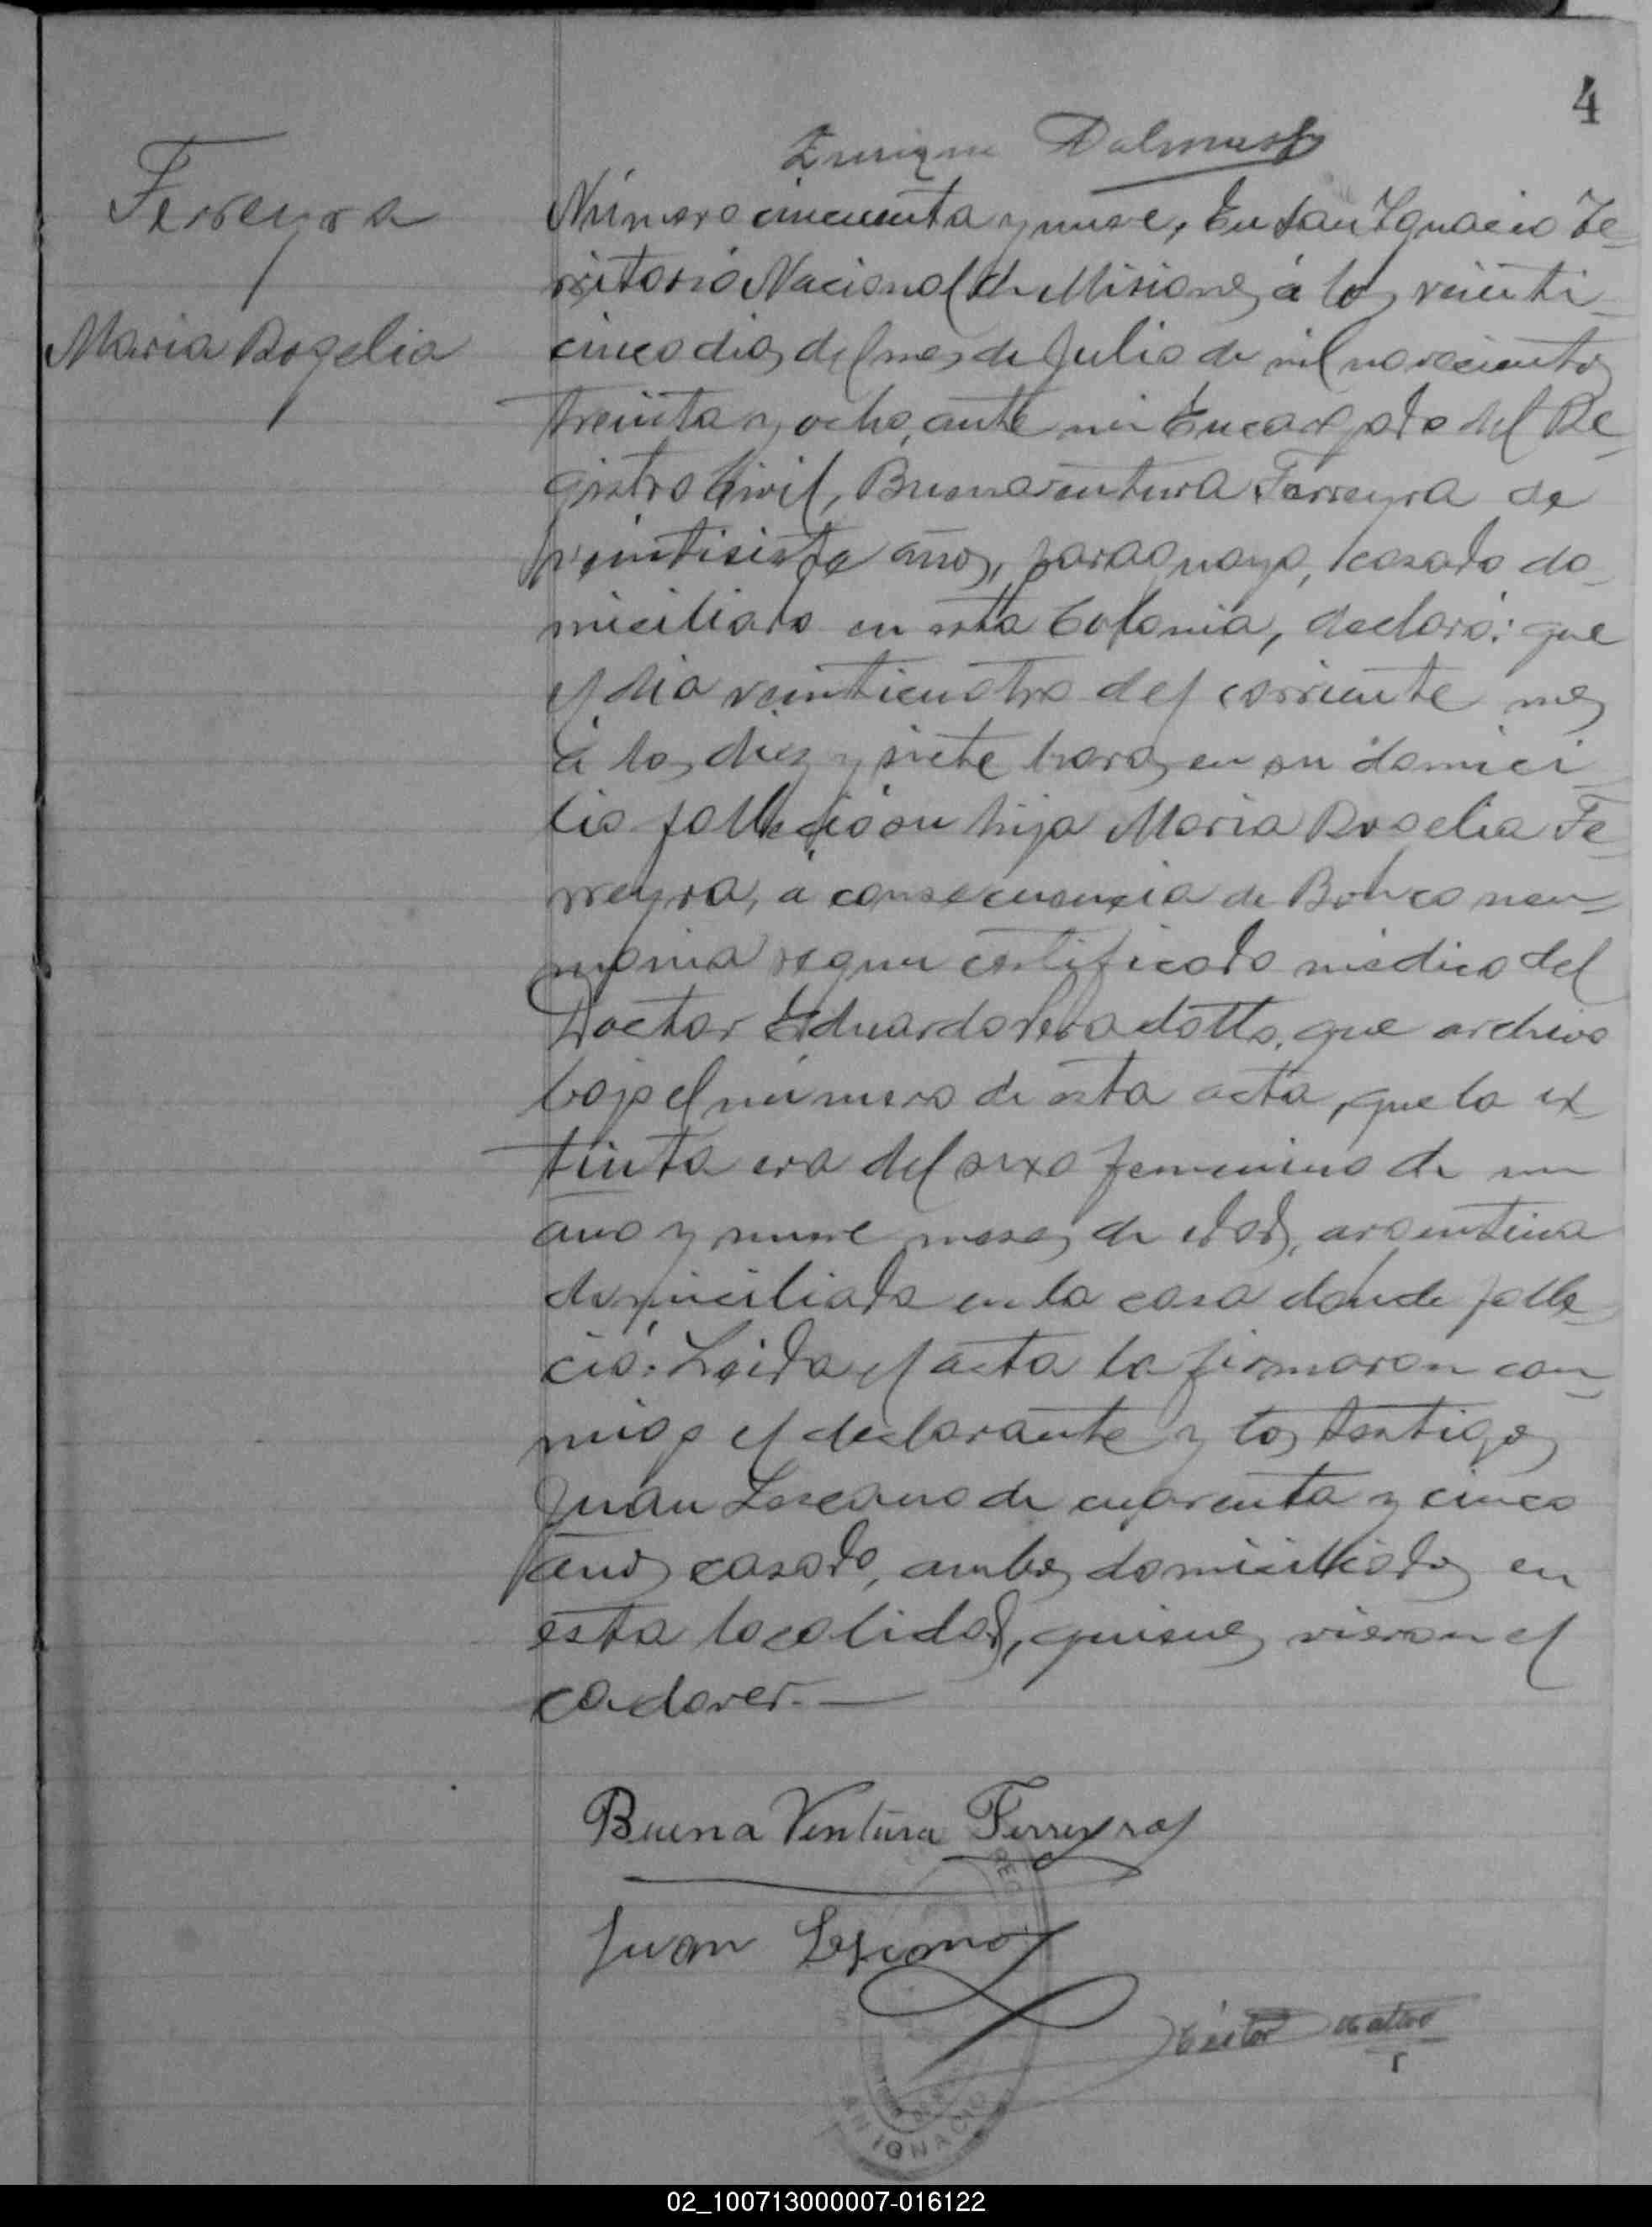 4
Enrique Dalmas
Ferreyra
Maria Rogelia
Número cincuenta y nueve, En San Ignacio Te-
rritorio Nacional de Misiones á los veinti-
cinco dias del mes de Julio de mil novecientos
treinta y ocho, ante mi Encargado del Re-
gistro Civil, Buenaventura Ferreyra de
veintisiete años, paraguayo, casado do-
miciliado en esta Colonia, declaró: que
el dia veinticuatro del corriente mes
á las diez y siete horas en su domici-
lio falleció su hija Maria Rogelia Fe-
rreyra, á consecuencia de Bronco neu-
monia segun certificado médico del
Doctor Eduardo que archivo
bajo el número de esta acta, que la ex-
tinta era del sexo femenino de un
año y nueve meses de edad, argentina
domiciliada en la casa donde falle-
ció. Leida el acta la firmaron con-
migo el declarante y los testigos
Juan Lezcano de cuarenta y cinco
años casado, ambos domiciliados en
esta localidad, quienes vieron el
cadaver.—
Buena Ventura Ferreyra
Juan Lescano
SAN IGNACIO
02_100713000007-016122